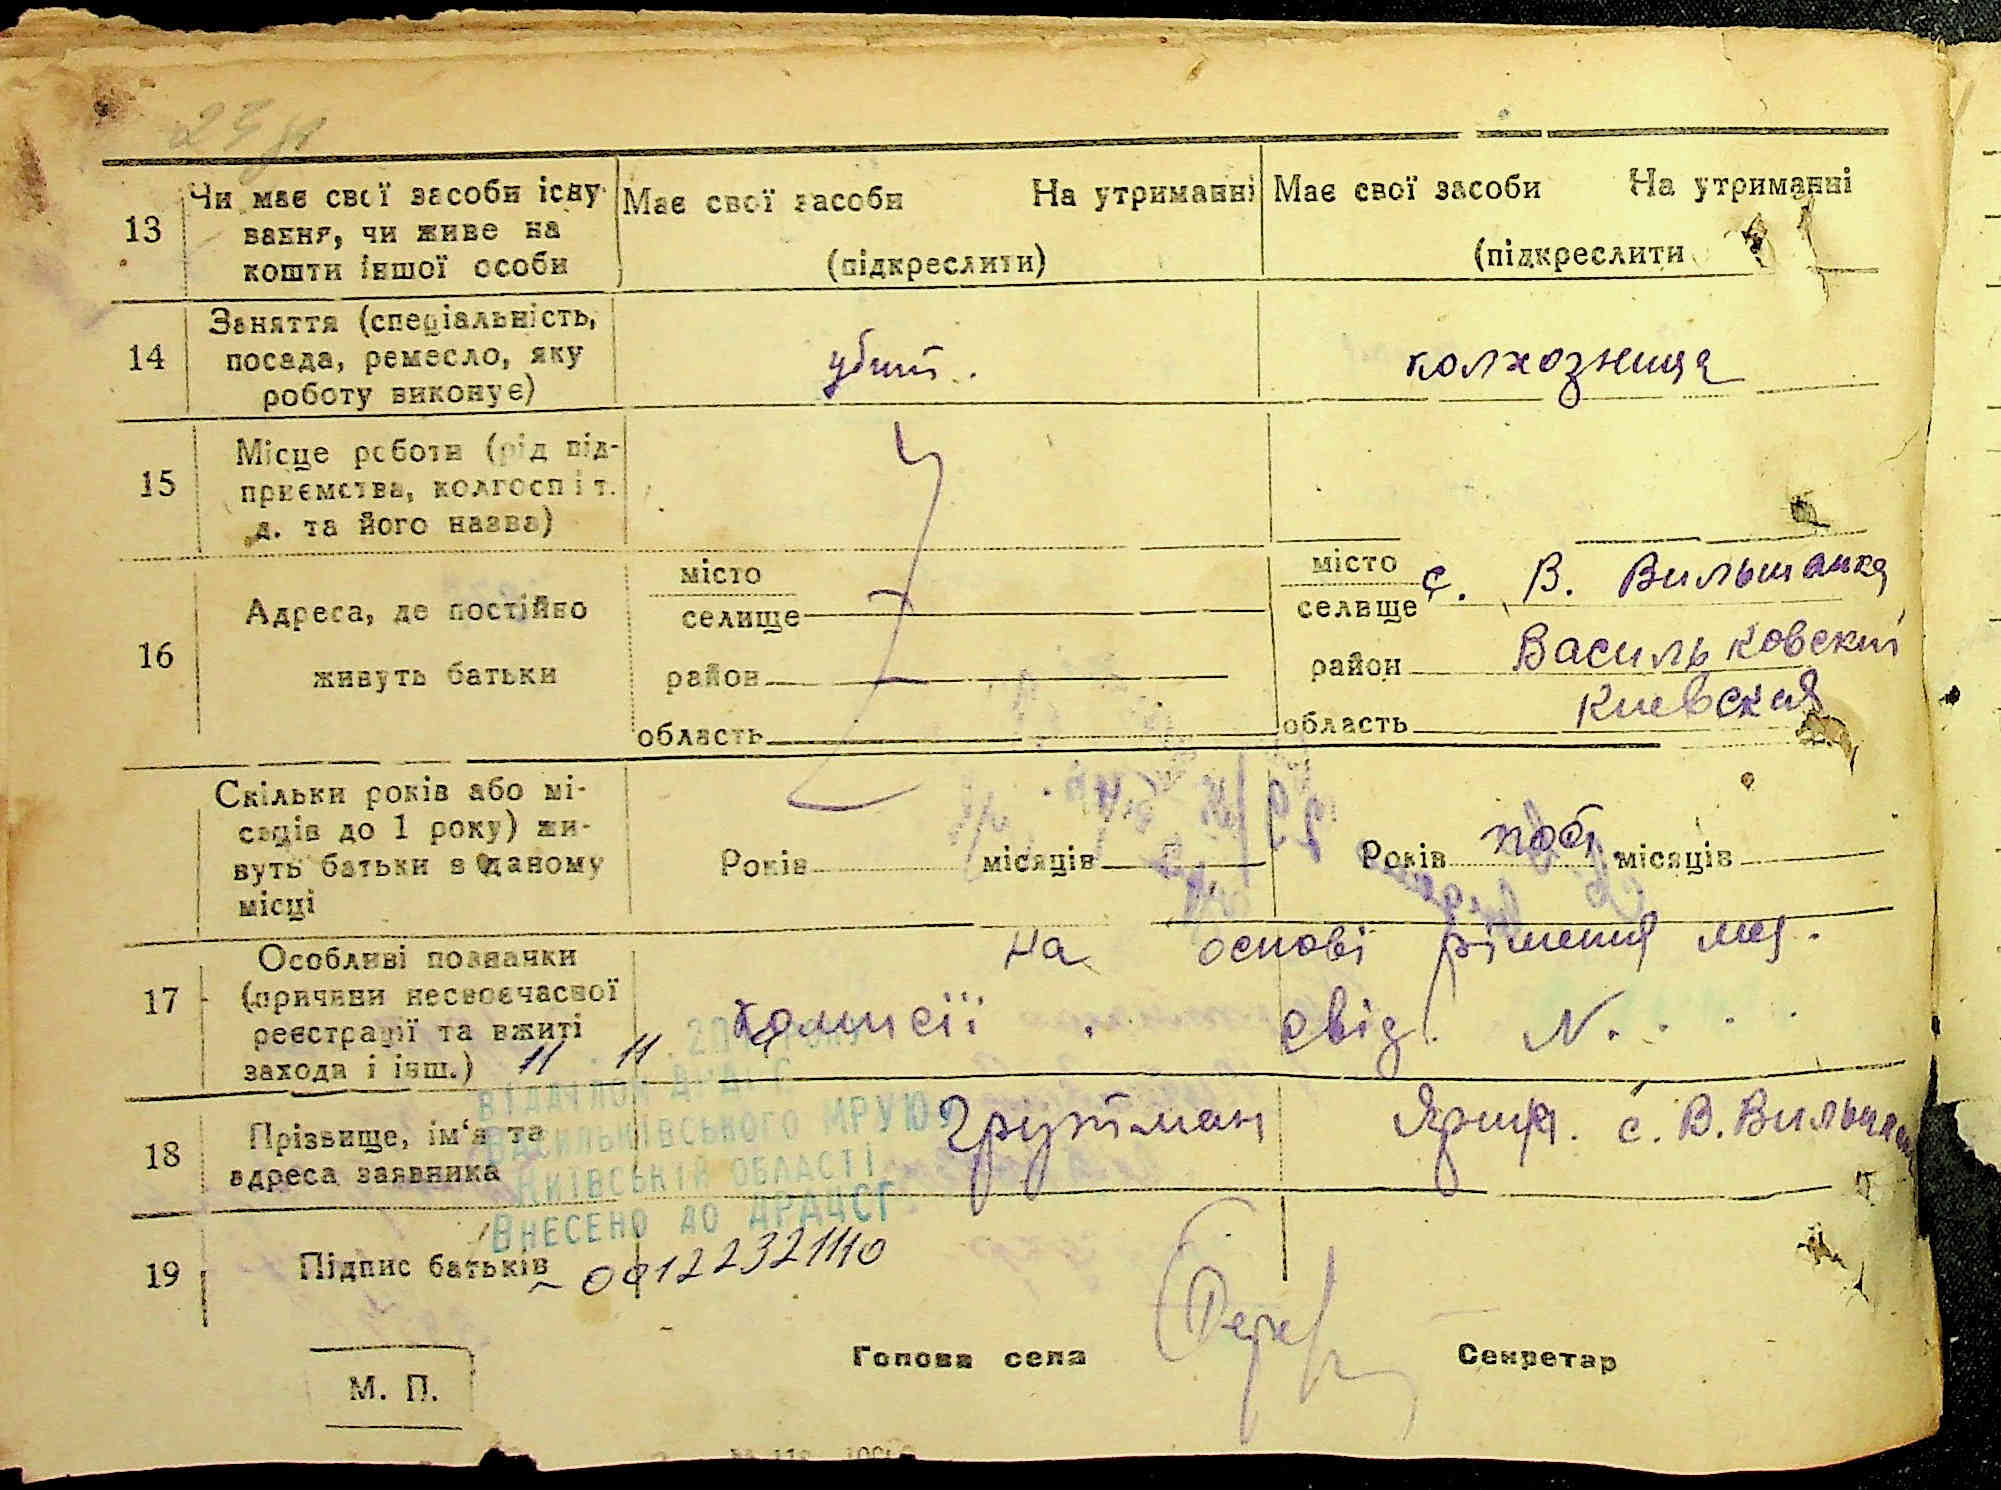 13 Чи має свої засоби існу-
вання, чи живе на
кошти іншої особи
Має свої засоби На утриманні
(підкреслити)
Має свої засоби На утриманні
(підкреслити
14 Заняття (спеціальність,
посада, ремесло, яку
роботу виконує)
убит.
колхозница
15 Місце роботи (рід під-
приємства, колгосп і т.
д. та його назва)
16 Адреса, де постійно
живуть батьки
місто
селище
район
область
місто
селище с. В. Вильшанка
район Васильковский
область Киевская
Скільки років або мі-
сяців до 1 року) жи-
вуть батьки в даному
місці
Років місяців
Років пост. місяців
17 Особливі позначки
(причини несвоєчасної
реєстрації та вжиті
заходи і інш.)
на основі рішення мед.
комисії. свід. N. . . .
11 11 201 року
Відділом ДРАЦС
Васильківського МРУЮ
Київській області
Внесено до ДРАЦСГ
18 Прізвище, ім'я та
адреса заявника
с. В. Вильшан
19 Підпис батьків
00122321110
Голова села
Секретар
М. П.